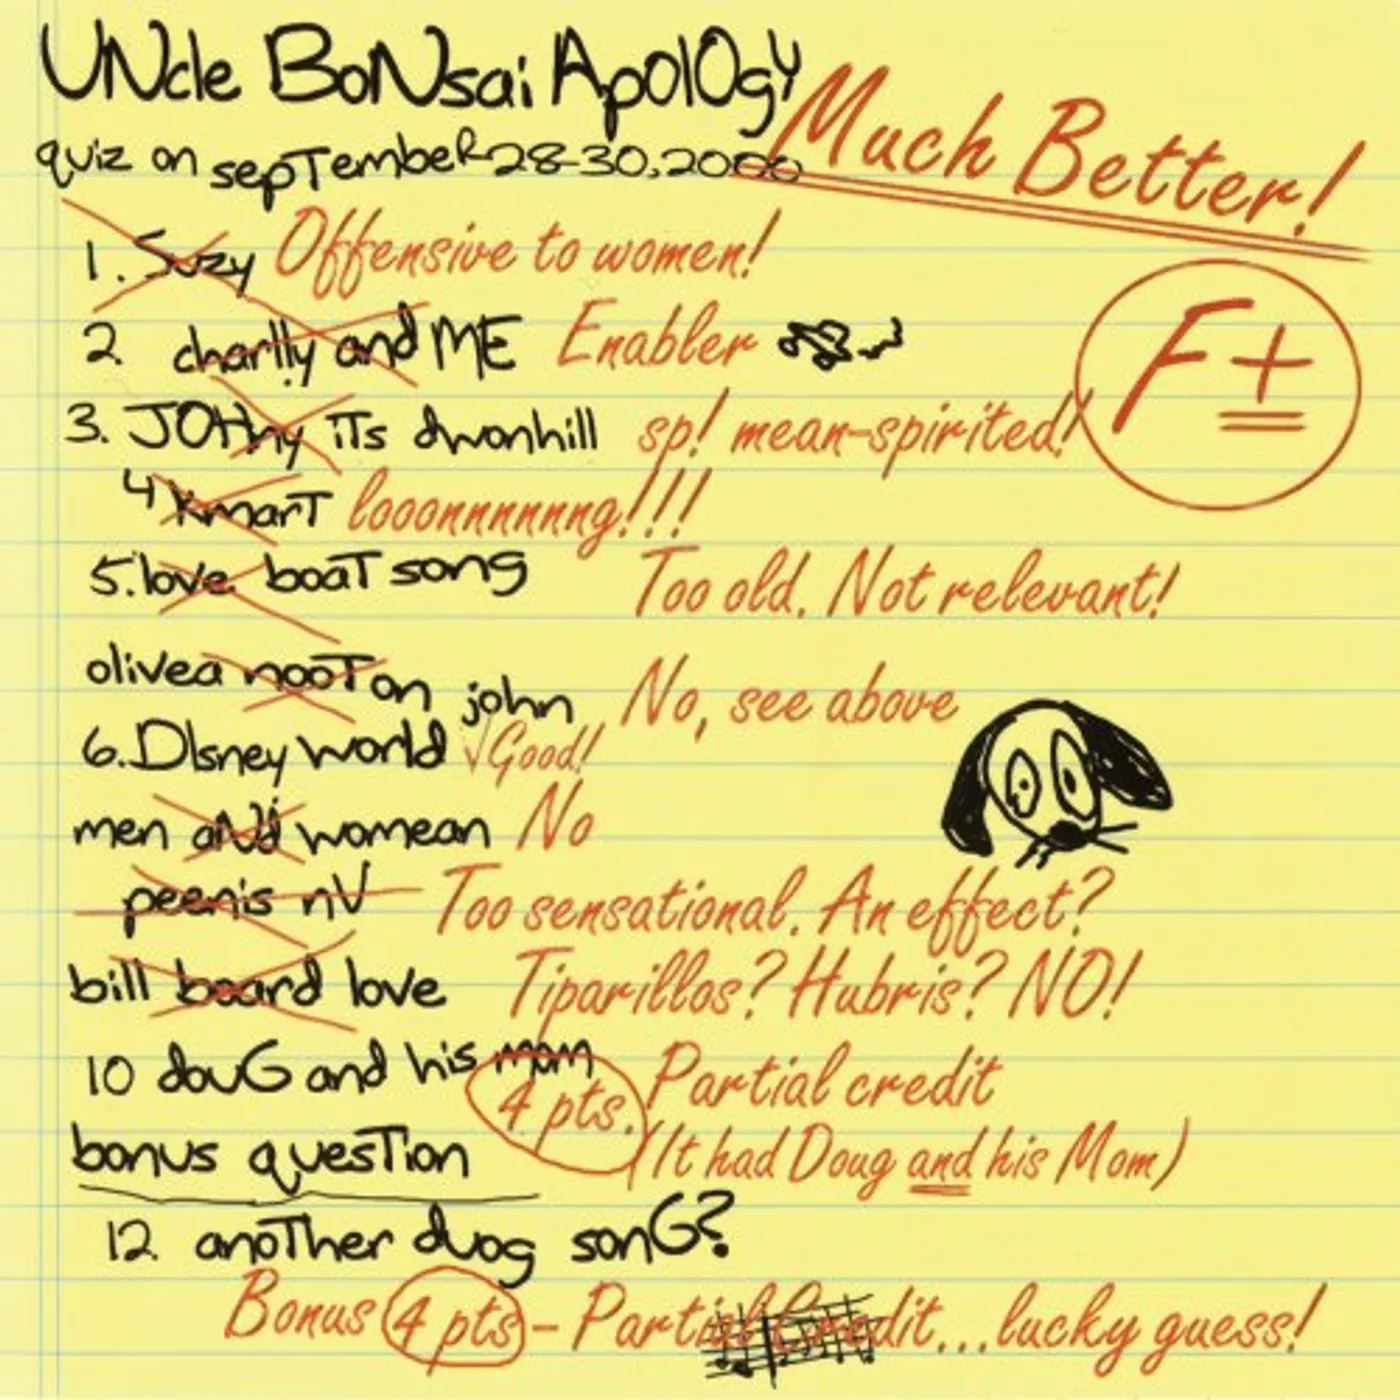 UNcle BoNsai ApolOgy
Much Better!
quiz on sepTembeR 28-30, 2000
1. Suzy Offensive to women!
F+
2. charlly and ME Enabler
3. JOHny iTs dwonhill sp! mean-spirited!
4 KmarT looonnnnnng!!!
5. love boaT song Too old. Not relevant!
olivea nooT on john No, see above
6. DIsney world √Good!
men aNd womean No
peenis nV Too sensational. An effect?
bill board love Tiparillos? Hubris? NO!
10 douG and his mom Partial credit
4 pts.
bonus quesTion (It had Doug and his Mom)
12. anoTher duog sonG?
Bonus 4 pts - Partial Credit...lucky guess!